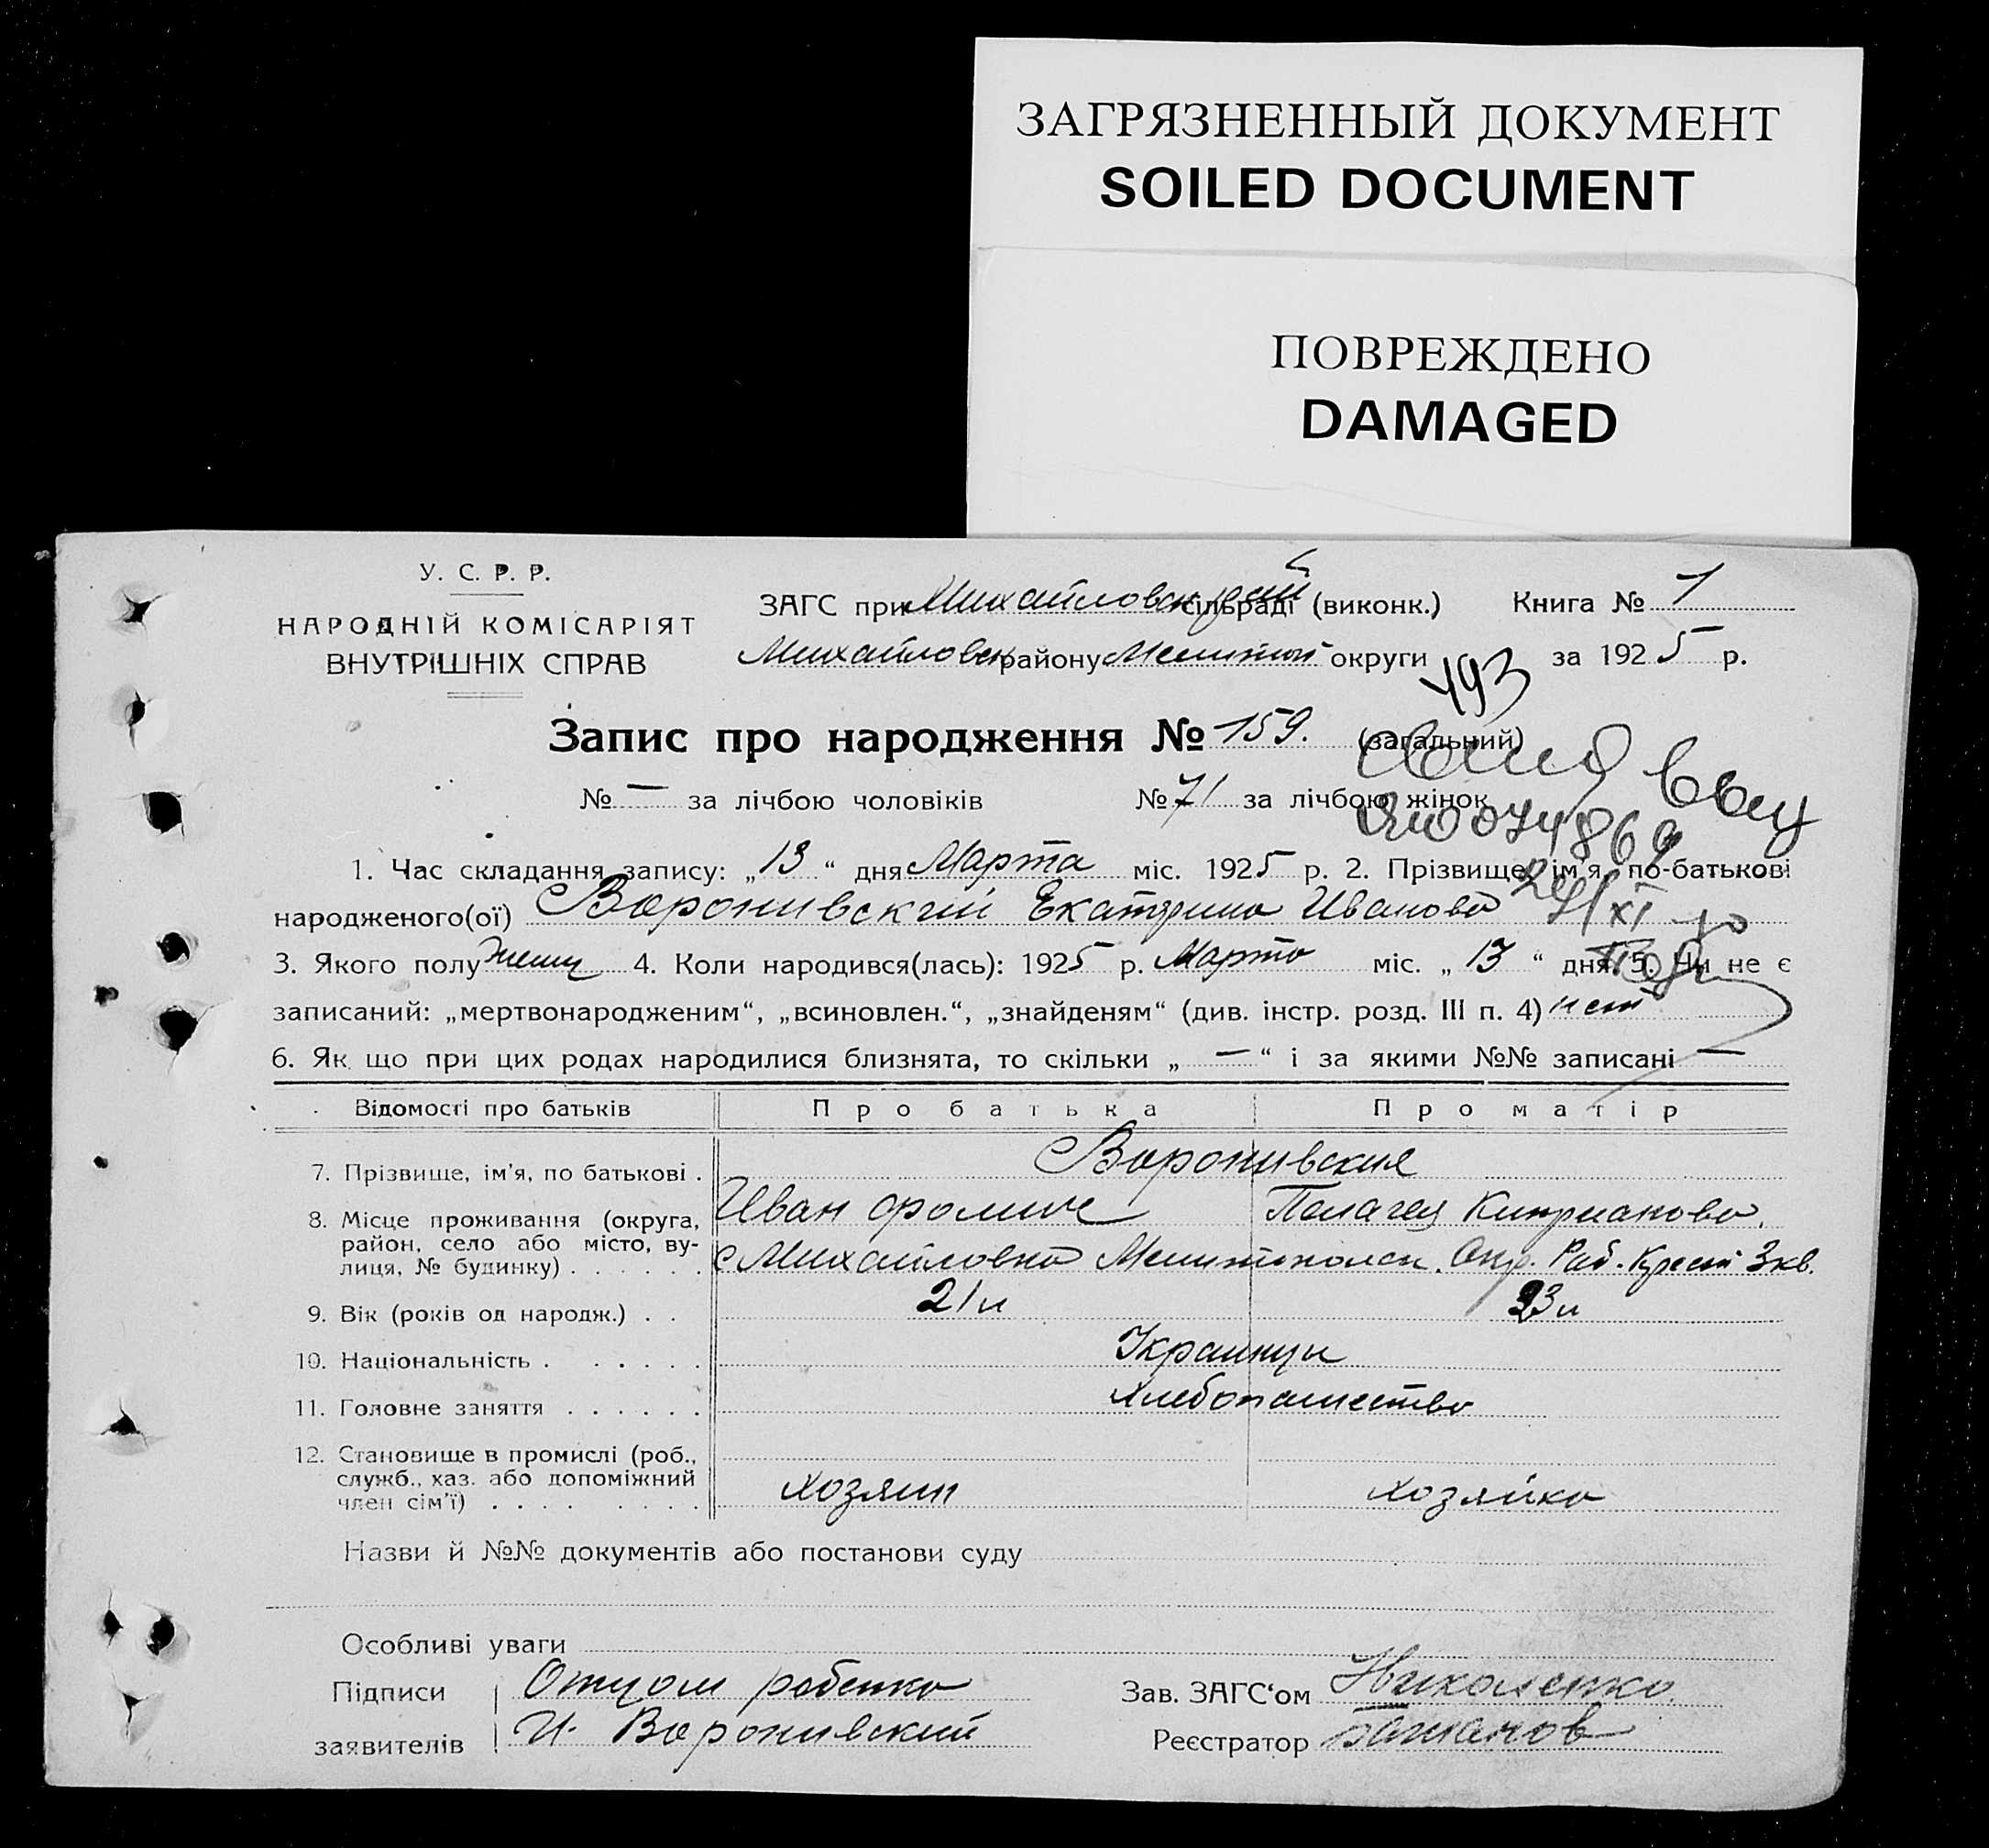 ЗАГРЯЗНЕННЫЙ ДОКУМЕНТ
SOILED DOCUMENT
ПОВРЕЖДЕНО
DAMAGED
У. С. Р. Р.
НАРОДНІЙ КОМІСАРІЯТ
ВНУТРІШНІХ СПРАВ
ЗАГС при Михайловск сільраді (виконк.) Книга № 1
Михайловск району Мелитоп округи за 1925 р.
493
Запис про народження № 159. (загальний)
№ — за лічбою чоловіків № 71 за лічбою жінок
ЯЮ 074869
1. Час складання запису: „13“ дня Марта міс. 1925 р. 2. Прізвище, ім'я, по-батькові
24/XI
народженого(ої) Воронивский Екатерина Иванова
3. Якого полу женск 4. Коли народився(лась): 1925 р. Марта міс. „13“ дня. 5. Чи не є
записаний: „мертвонародженим“, „всиновлен.“, „знайденям“ (див. інстр. розд. III п. 4) нет
6. Як що при цих родах народилися близнята, то скільки „—“ і за якими №№ записані —
Відомості про батьків Про батька Про матір
7. Прізвище, ім'я, по батькові . Воронивские
Иван Фомич Пелагея Киприановa
8. Місце проживання (округа, район, село або місто, вулиця, № будинку) . . . . . . с Михайловка Мелитопольск. Окр. Раб.-Крест 3 кв.
9. Вік (років од народж.) . . 21 л 23 л
10. Національність . . . . . . Украинцы
11. Головне заняття . . . . . . Хлебопашество
12. Становище в промислі (роб., служб., хаз. або допоміжний член сім'ї) . . . . . . . . хозяин хозяйка
Назви й №№ документів або постанови суду
Особливі уваги
Підписи Отцом ребенка Зав. ЗАГС‘ом Николенко
заявителів И. Воронивский Реєстратор Бажанов